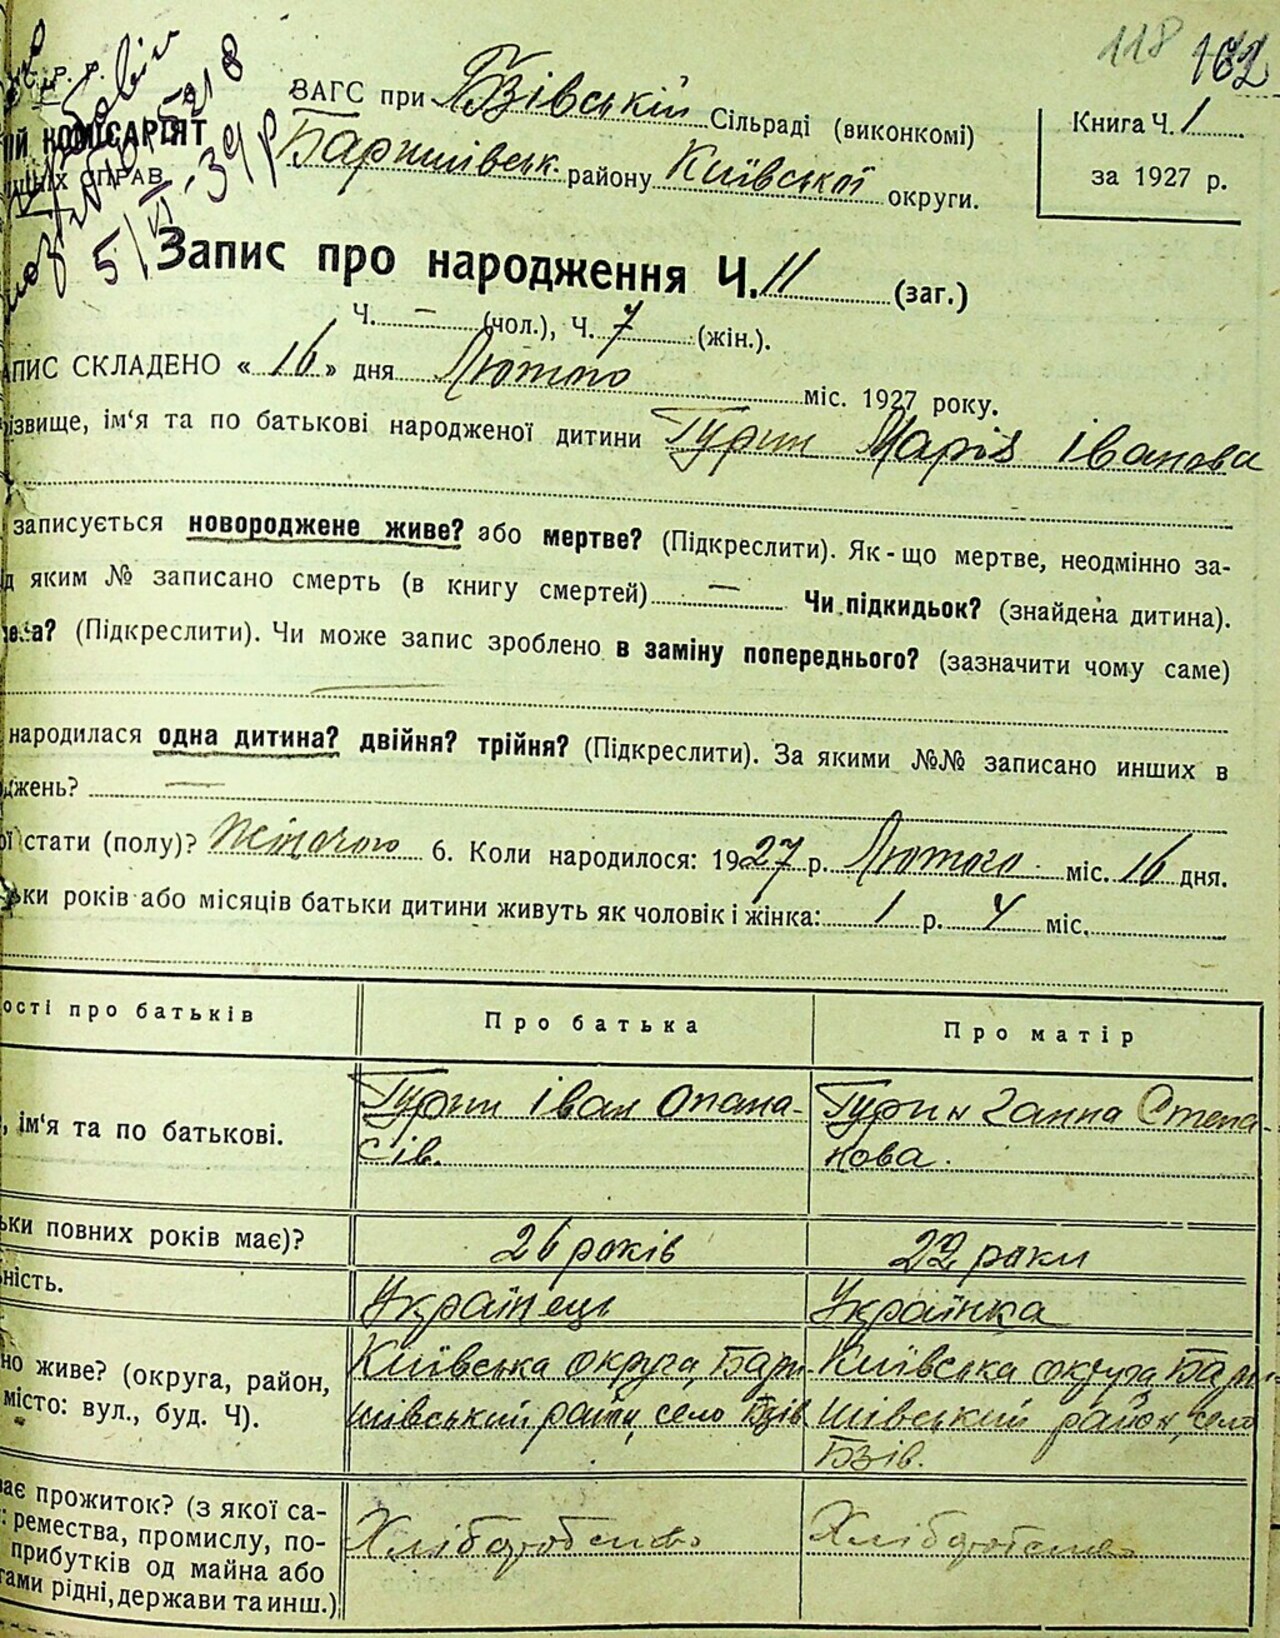 118 162
С. Р. Р.
ЗАГС при Бзівській Сільраді (виконкомі)
Книга Ч. 1
ІЙ КОМІСАРІЯТ
Баришівськ. району Київської округи.
за 1927 р.
СПРАВ
5/VI-39р
Запис про народження Ч. 11 (заг.)
Ч. — (чол.), Ч. 7 (жін.).
АПИС СКЛАДЕНО « 16 » дня Лютого міс. 1927 року.
різвище, ім'я та по батькові народженої дитини Гурин Марія Іванова
записується новороджене живе? або мертве? (Підкреслити). Як-що мертве, неодмінно за-
д яким № записано смерть (в книгу смертей) — Чи підкидьок? (знайдена дитина).
(Підкреслити). Чи може запис зроблено в заміну попереднього? (зазначити чому саме)
народилася одна дитина? двійня? трійня? (Підкреслити). За якими №№ записано инших в
джень? —
ої стати (полу)? Жіночого 6. Коли народилося: 1927 р. Лютого міс. 16 дня.
ьки років або місяців батьки дитини живуть як чоловік і жінка: 1 р. 4 міс.
ості про батьків Про батька Про матір
, ім'я та по батькові. Гурин Іван Опана- Гурин Ганна Степа-
сів. нова.
ьки повних років має)? 26 років 22 роки
ність. Українець Українка
но живе? (округа, район, Київська округа, Бари- Київська округа, Бари-
місто: вул., буд. Ч). шівський район, село Бзів шівський район, село
Бзів.
ає прожиток? (з якої са-
: ремества, промислу, по- Хліборобство Хліборобство
прибутків од майна або
гами рідні, держави та инш.)